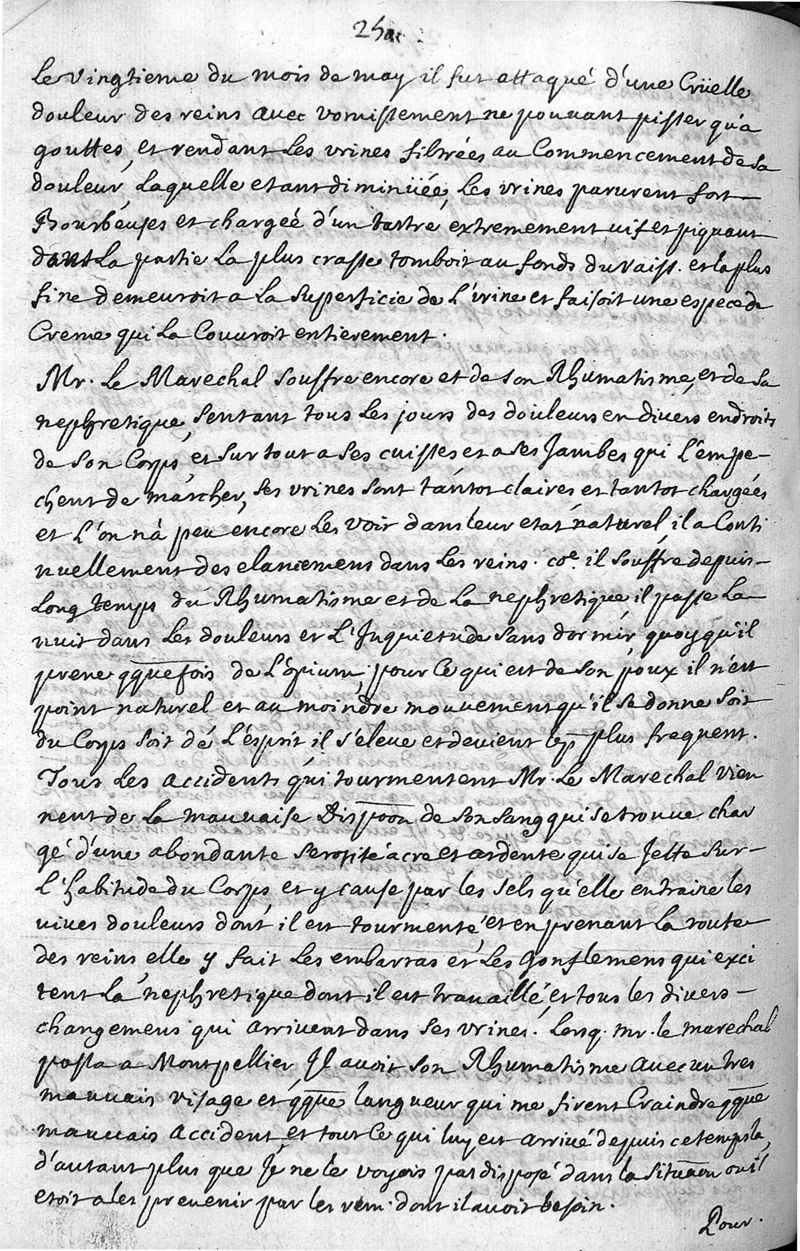 le vingtieme du mois de may il fut attaqué d'une Crüelle
douleur des reins avec vomissement ne pouvant pisser qu'a
gouttes, et rendant les urines filtrées au Commencement de sa
douleur, laquelle etant diminüée, les urines parurent fort
Bourbeuses et chargéé d'un tartre extremement vif et piquant
dont la partie la plus crasse tomboit au fonds du vaiss. et la plus
fine demeuroit a la superficie de l'urine et faisoit une espece de
Creme qui la Couvroit entierement.
Mr. le Marechal souffre encore et de son Rhumatisme, et de sa
nephretique, sentant tous les jours des douleurs en divers endroits
de son Corps, et sur tout a ses cuisses et a ses Jambes qui l'empe-
chent de marcher, ses urines sont tantot claires et tantot chargées
et l'on n'à peu encore les voir dans leur etat naturel, il a Conti
nuellement des elancemens dans les reins. coe. il souffre depuis
long temps du Rhumatisme et de la nephretique il passe la
nuit dans les douleurs et l'Inquietude sans dormir, quoy qu'il
prene qque fois de l'opium, pour ce qui est de son poux il n'est
point naturel et au moindre mouvement qu'il se donne soit
du Corps soit de l'esprit il s'eleve et devient plus frequent.
Tous les accidents qui tourmentent Mr. le Marechal vien
nent de la mauvaise Dispoon de son sang qui se trouve char
gé d'une abondante serosité acre et ardente qui se Jette sur
l'habitude du Corps, et y cause par les sels qu'elle entraine les
vives douleurs dont il est tourmenté et en prenant la route
des reins elle y fait les embarras et les gonflemens qui exci
tent la nephretique dont il est travaillé, et tous les divers
changemens qui arrivent dans ses urines. Lorsq. mr. le marechal
passa a Montpellier Il avoit son Rhumatisme avec un tres
mauvais visage et qque langueur qui me firent Craindre qque
mauvais accident, et tout ce qui luy est arrivé depuis ce temps la,
d'autant plus que Je ne le voyois pas disposé dans la Situaon ou il
etoit a les prevenir par les rem. dont il avoit besoin.
Pour.